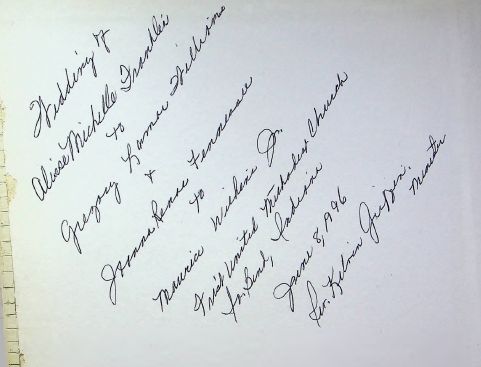 Wedding of
Alisse Michelle Franklin
to
Gregory Lamar Williams
&
Joanna Renae Tennessee
to
Maurice Wilkins Jr.
First United Methodist Church
So. Bend, Indiana
June 8, 1996
Rev. Kelvin
Minister